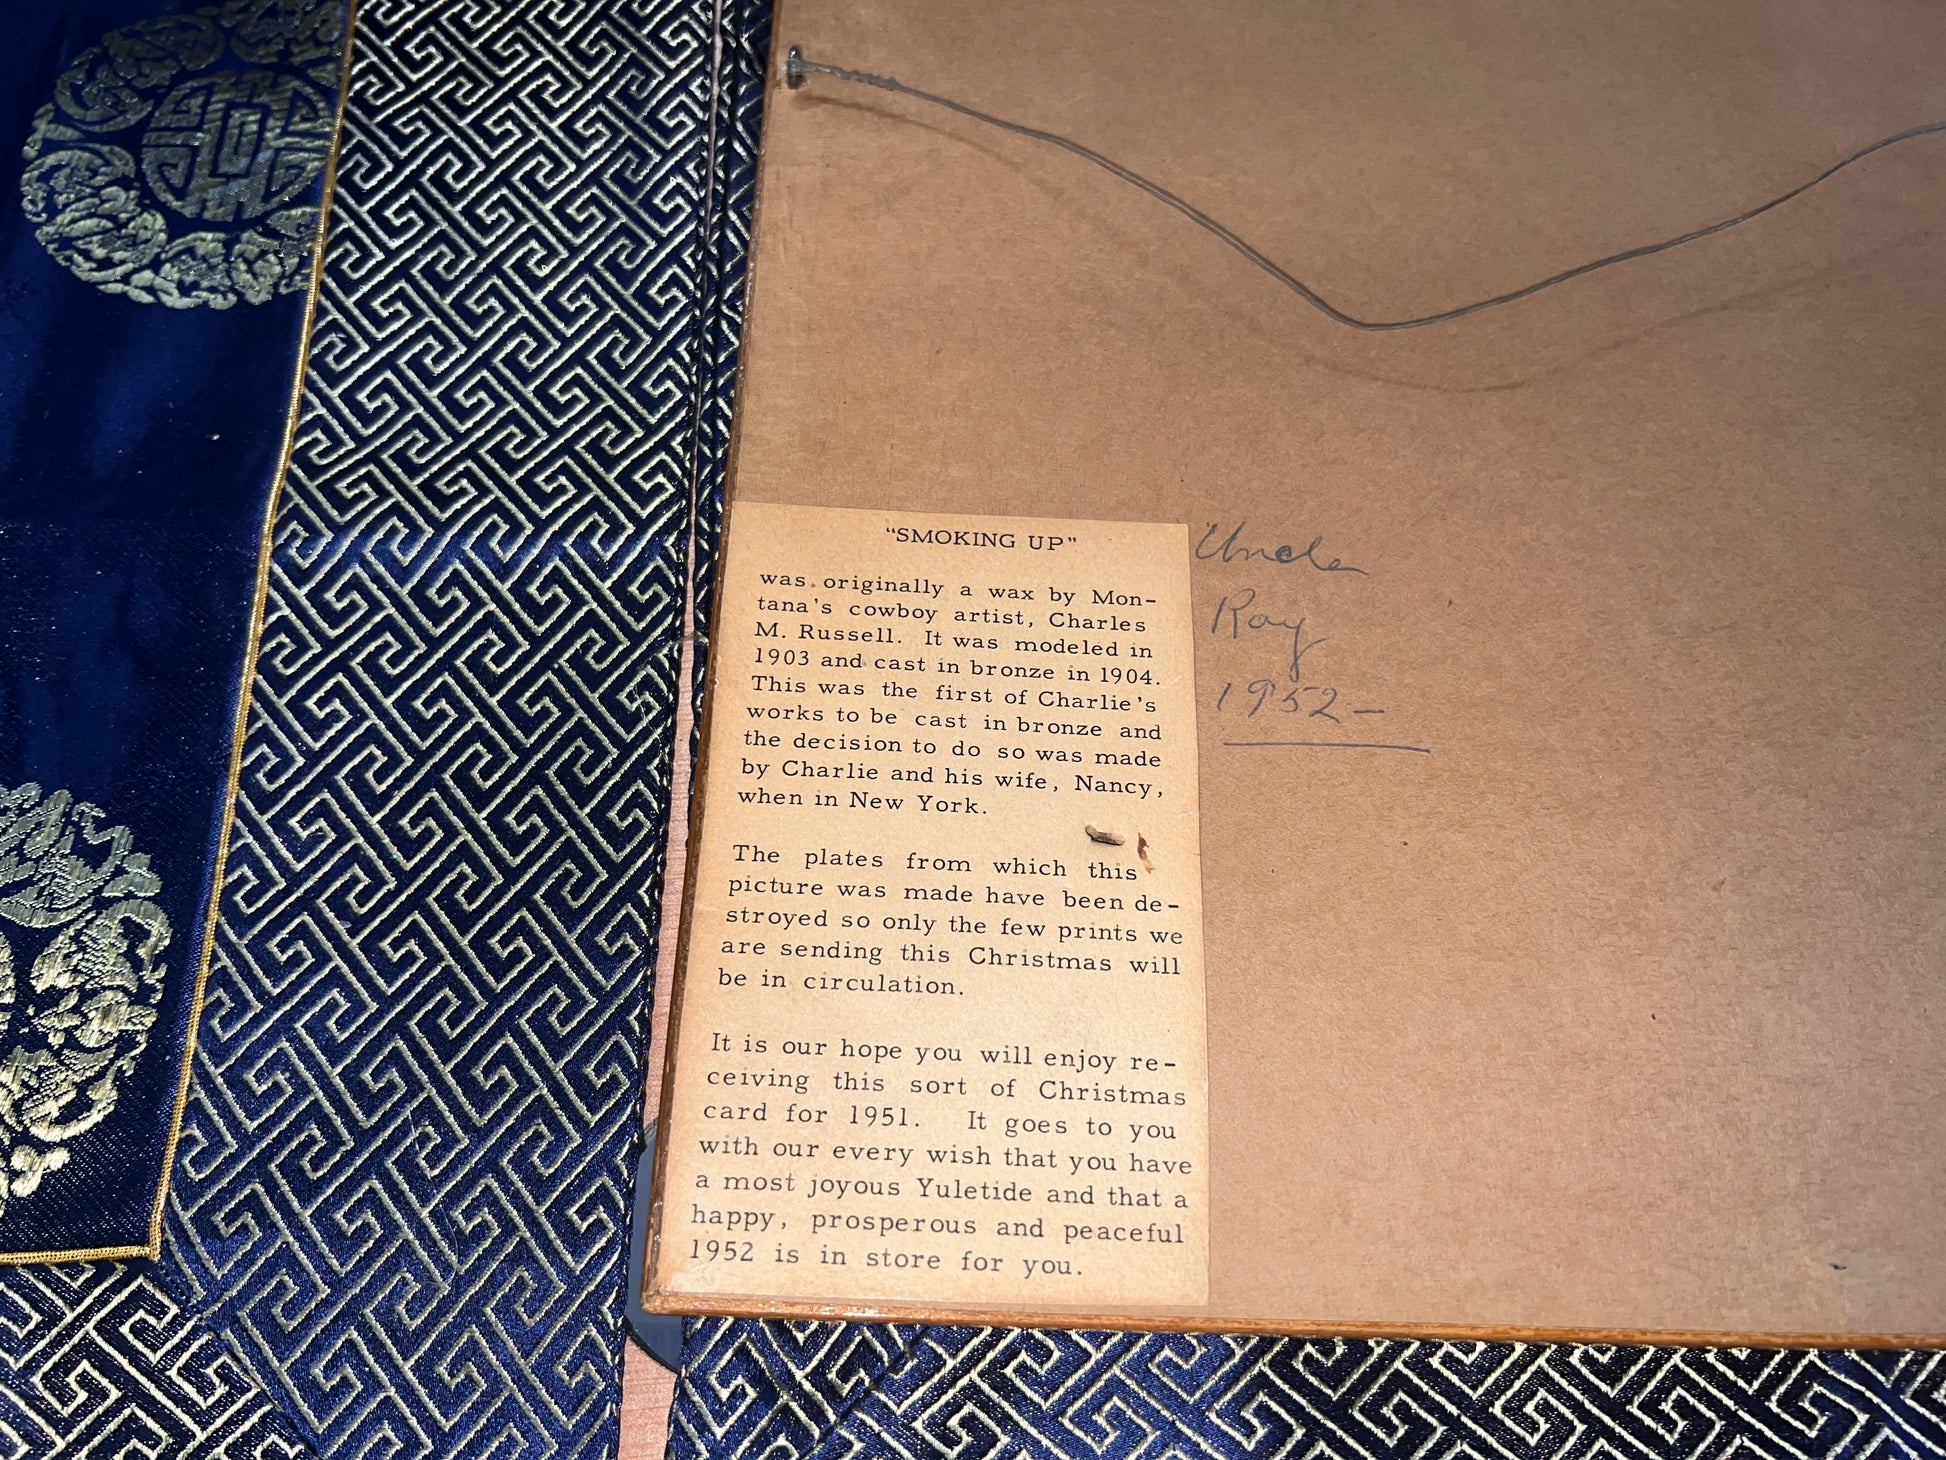 "SMOKING UP"
was originally a wax by Mon-
tana's cowboy artist, Charles
M. Russell. It was modeled in
1903 and cast in bronze in 1904.
This was the first of Charlie's
works to be cast in bronze and
the decision to do so was made
by Charlie and his wife, Nancy,
when in New York.
The plates from which this
picture was made have been de-
stroyed so only the few prints we
are sending this Christmas will
be in circulation.
It is our hope you will enjoy re-
ceiving this sort of Christmas
card for 1951. It goes to you
with our every wish that you have
a most joyous Yuletide and that a
happy, prosperous and peaceful
1952 is in store for you.
Uncle
Ray
1952-